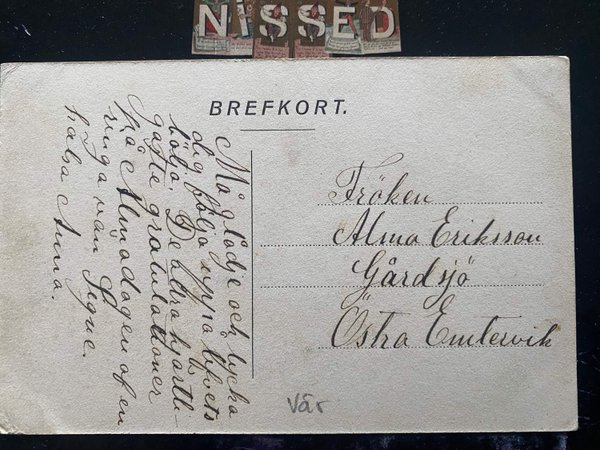 NISSED
BREFKORT.
Må glädje och lycka
dig följa uppå lifvets
bölja. De allra hjärtli-
gaste gratulationer
på Almadagen af en
ringa vän Signe.
hälsa Anna.
Fröken
Alma Eriksson
Gårdsjö
Östra Emtervik
Vår